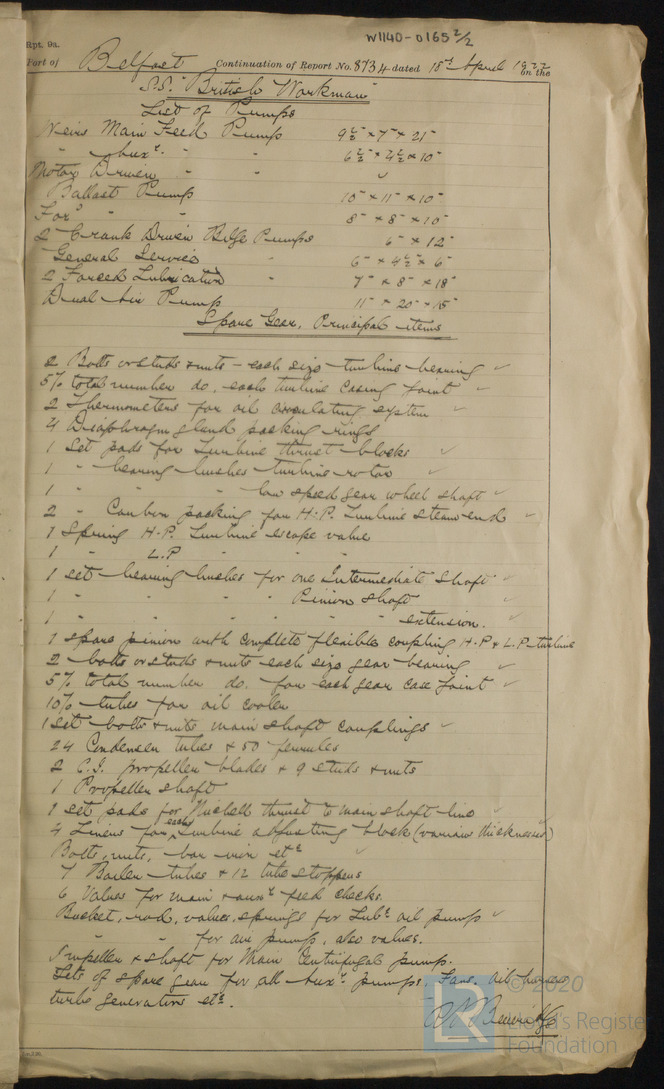 W1140-0165 2/2
Rpt. 9a.
Port of Belfast Continuation of Report No. 8734 dated 18th April 1922 on the
S.S. "British Workman"
List of Pumps
Weirs Main Feed Pump 9½" × 7" × 21"
" Auxr. " " 6½" × 4½" × 10"
Motor Driven " " ✓
Ballast Pump 10" × 11" × 10"
Ford " " 8" × 8" × 10"
2 Crank Driven Bilge Pumps 6" × 12"
General Service " 6" × 4½" × 6"
2 Forced Lubrication " 7" × 8" × 18"
Dual Air Pump 11" × 20" × 15"
Spare Gear. Principal items
2 Bolts or studs & nuts - each size turbine bearing ✓
5% total number do. each turbine casing joint ✓
2 Thermometers for oil circulating system ✓
4 Diaphragm gland packing rings
1 Set pads for Turbine thrust blocks ✓
1 " bearing bushes turbine rotor ✓
1 " " " low speed gear wheel shaft ✓
2 " Carbon packing for H.P. Turbine steam end ✓
1 Spring H.P. Turbine escape valve
1 " L.P. " " "
1 set bearing bushes for one Intermediate Shaft ✓
1 " " " " Pinion shaft ✓
1 " " " " " extension. ✓
1 spare pinion with complete flexible coupling H.P & L.P turbine
2 bolts or studs & nuts each size gear bearing ✓
5% total number do. for each gear case joint ✓
10% tubes for oil cooler
1 set bolts & nuts main shaft couplings ✓
24 Condenser tubes & 50 ferrules
2 C.I. propeller blades & 9 studs & nuts
1 Propeller shaft
1 set pads for Michell thrust to main shaft line ✓
4 Liners for each Turbine adjusting block (various thicknesses)
Bolts, nuts, bar iron etc ✓
7 Boiler tubes & 12 tube stoppers
6 Valves for main & auxr feed checks.
Bucket, rod, valves, springs for Lubg oil pump ✓
" " for air pump, also valves.
Impeller & shaft for Main Centrifugal pump.
Sets of spare gear for all Auxr. pumps, Fans, oil burners
turbo generators etc.
© 2020
Lloyd's Register
Foundation